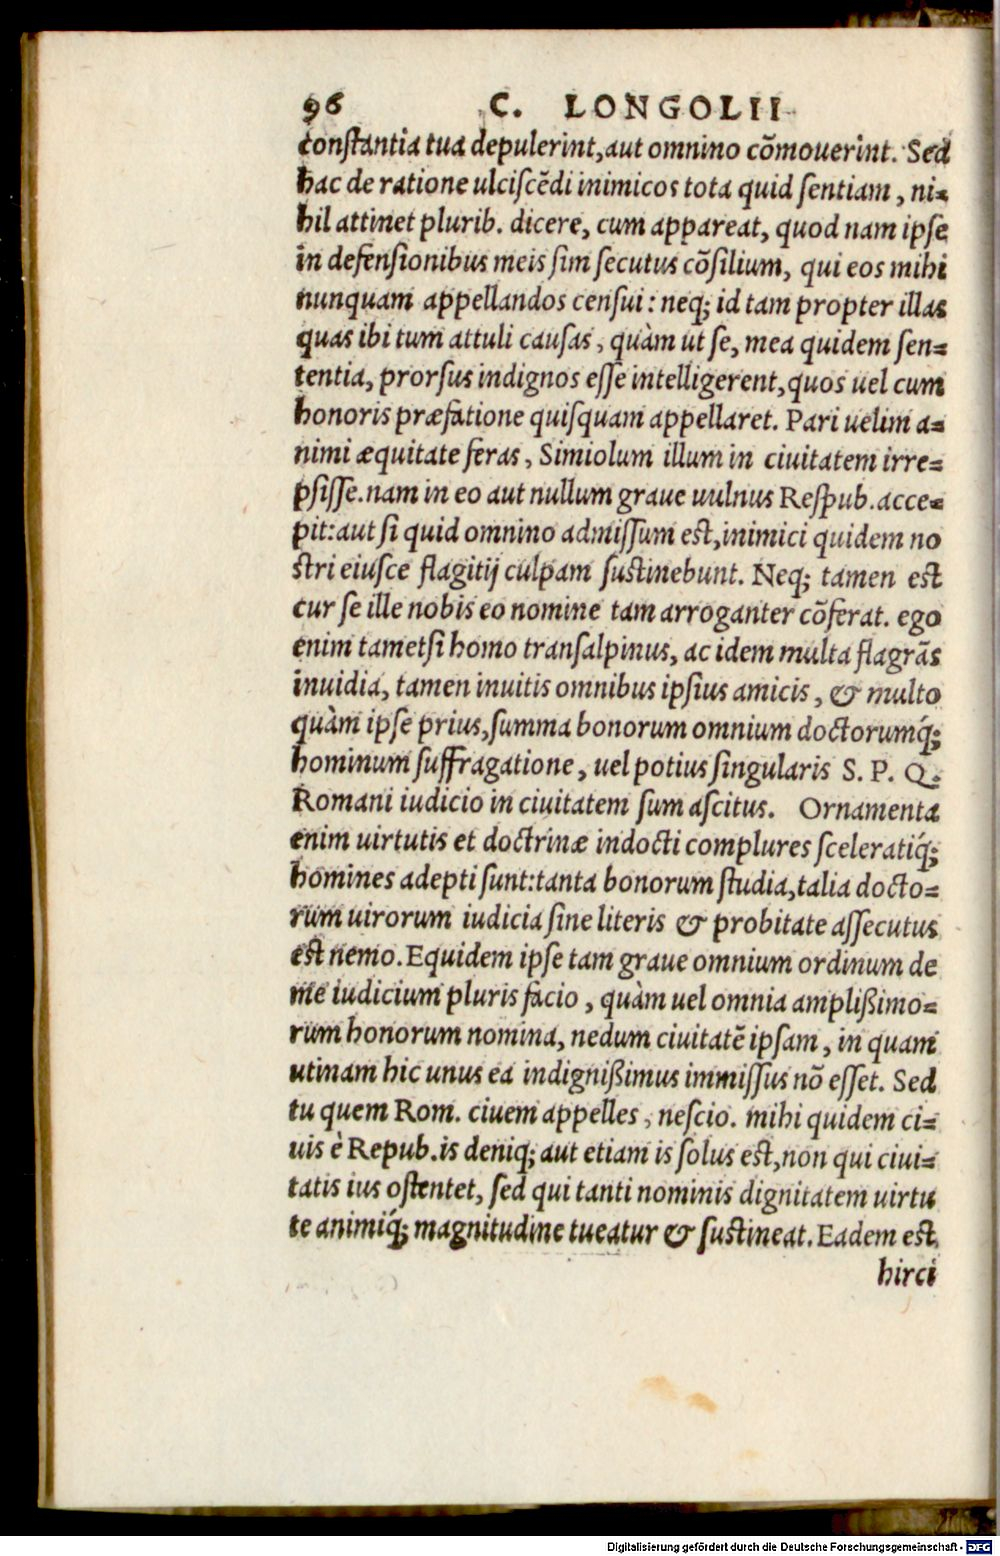 96 C. LONGOLII
constantia tua depulerint, aut omnino cõmouerint. Sed
hac de ratione ulciscẽdi inimicos tota quid sentiam, ni=
hil attinet plurib. dicere, cum appareat, quod nam ipse
in defensionibus meis sim secutus cõsilium, qui eos mihi
nunquam appellandos censui: neq; id tam propter illas
quas ibi tum attuli causas, quàm ut se, mea quidem sen=
tentia, prorsus indignos esse intelligerent, quos uel cum
honoris præfatione quisquam appellaret. Pari uelim a=
nimi æquitate feras, Simiolum illum in ciuitatem irre=
psisse. nam in eo aut nullum graue uulnus Respub. acce=
pit: aut si quid omnino admissum est, inimici quidem no
stri eiusce flagitij culpam sustinebunt. Neq; tamen est
cur se ille nobis eo nomine tam arroganter cõferat. ego
enim tametsi homo transalpinus, ac idem multa flagrãs
inuidia, tamen inuitis omnibus ipsius amicis, & multo
quàm ipse prius, summa bonorum omnium doctorumq́;
hominum suffragatione, uel potius singularis S. P. Q.
Romani iudicio in ciuitatem sum ascitus. Ornamenta
enim uirtutis et doctrinæ indocti complures sceleratiq́;
homines adepti sunt: tanta bonorum studia, talia docto=
rum uirorum iudicia sine literis & probitate assecutus
est nemo. Equidem ipse tam graue omnium ordinum de
me iudicium pluris facio, quàm uel omnia amplißimo=
rum honorum nomina, nedum ciuitatẽ ipsam, in quam
utinam hic unus ea indignißimus immissus nõ esset. Sed
tu quem Rom. ciuem appelles, nescio. mihi quidem ci=
uis è Repub. is deniq; aut etiam is solus est, non qui ciui=
tatis ius ostentet, sed qui tanti nominis dignitatem uirtu
te animiq́; magnitudine tueatur & sustineat. Eadem est
hirci
Digitalisierung gefördert durch die Deutsche Forschungsgemeinschaft - DFG